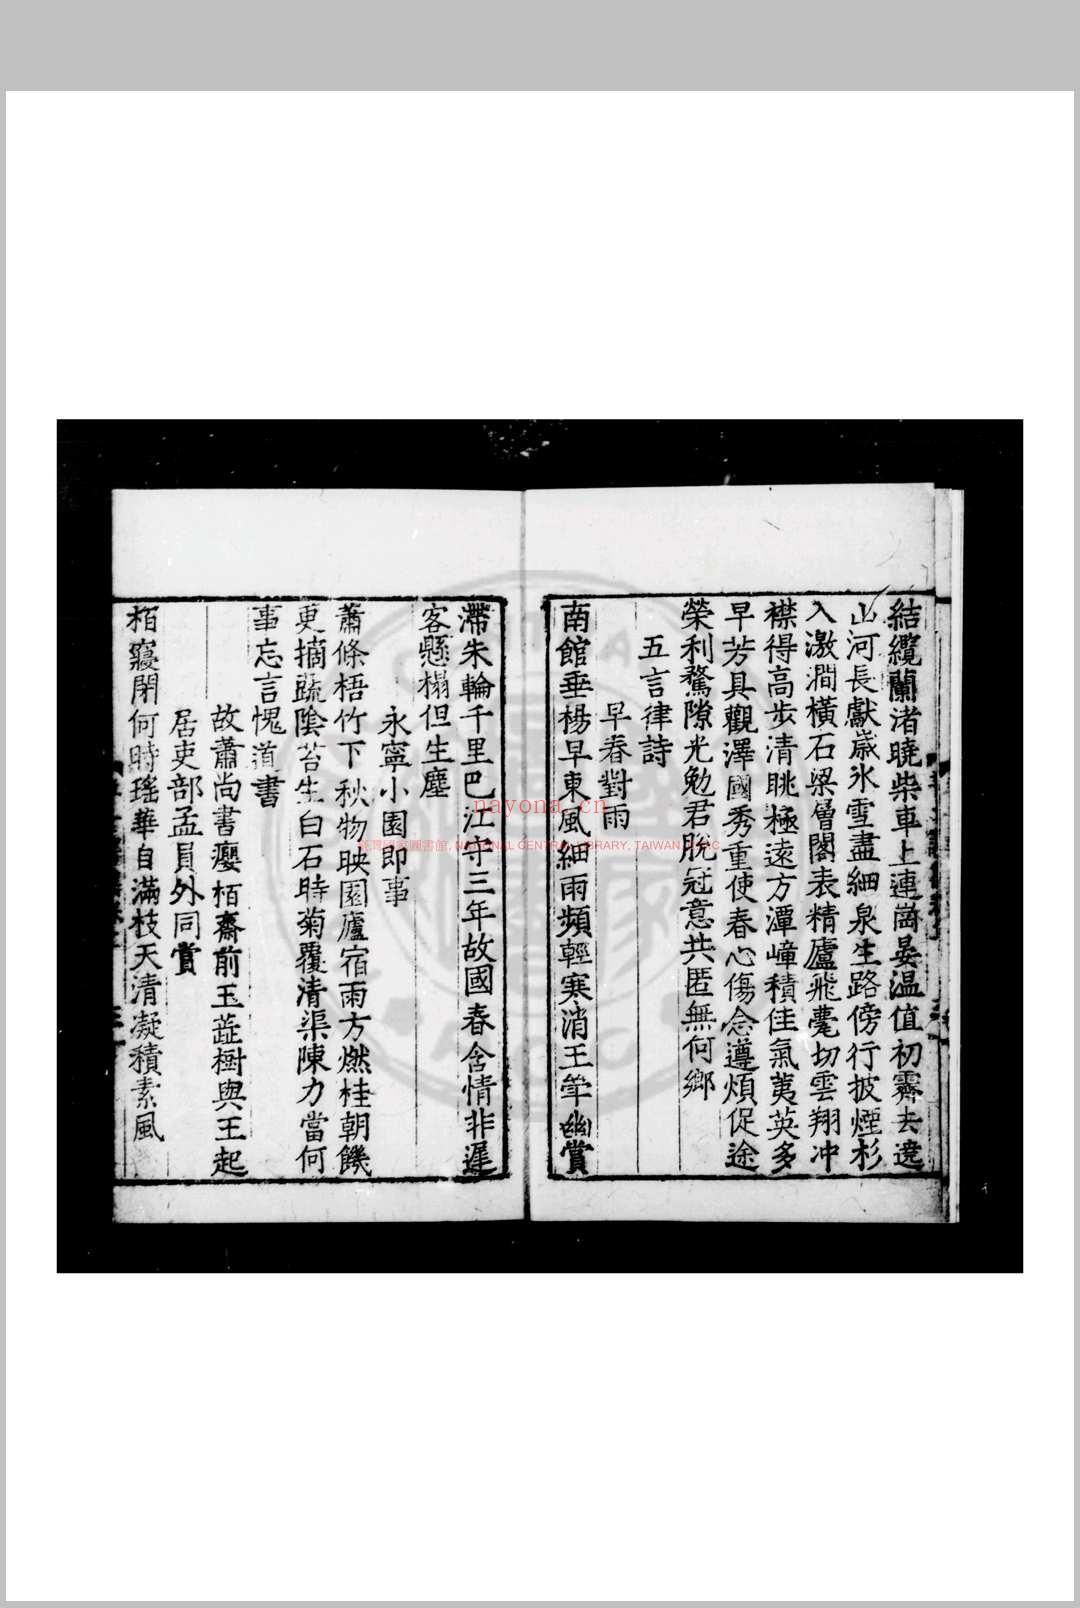 結纜蘭渚曉柴車上連崗晏温值初霽去遶
山河長獻歲氷雪盡細泉生路傍行披煙杉
入激澗橫石梁層閣表精廬飛甍切雲翔冲
襟得高步清眺極遠方潭嶂積佳氣荑英多
早芳具觀澤國秀重使春心傷念遵煩促途
榮利騖隙光勉君脫冠意共匿無何鄉
五言律詩
早春對雨
南館垂楊早東風細雨頻輕寒消玉笋幽賞
滯朱輪千里巴江守三年故國春含情非遲
客懸榻但生塵
永寧小園即事
蕭條梧竹下秋物映園廬宿雨方燃桂朝饑
更摘蔬陰苔生白石時菊覆清渠陳力當何
事忘言愧道書
故蕭尚書癭栢齋前玉蕋樹與王起
居吏部孟員外同賞
栢寢閉何時瑤華自滿枝天清凝積素風
nayona.cn
臺灣國家圖書館, NATIONAL CENTRAL LIBRARY, TAIWAN, R.O.C